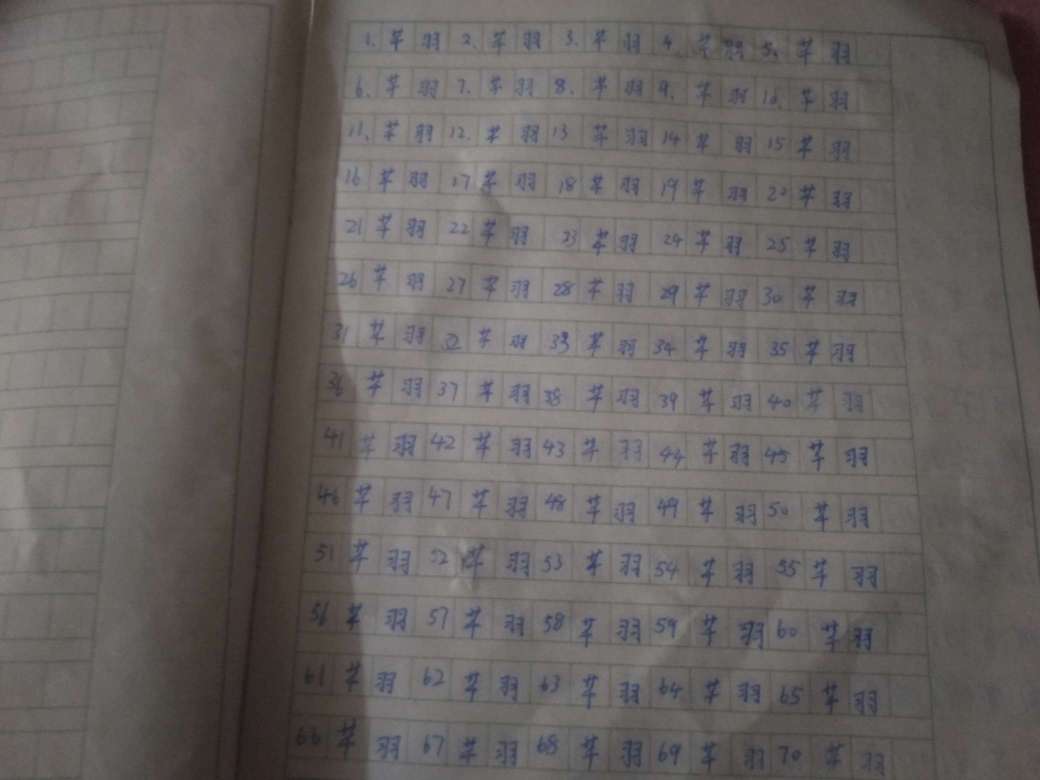 1、芊羽2、芊羽3、芊羽4、芊羽5、芊羽
6、芊羽7、芊羽8、芊羽9、芊羽10、芊羽
11、芊羽12、芊羽13芊羽14芊羽15芊羽
16芊羽17芊羽18芊羽19芊羽20芊羽
21芊羽22芊羽23芊羽24芊羽25芊羽
26芊羽27芊羽28芊羽29芊羽30芊羽
31芊羽32芊羽33芊羽34芊羽35芊羽
36芊羽37芊羽38芊羽39芊羽40芊羽
41芊羽42芊羽43芊羽44芊羽45芊羽
46芊羽47芊羽48芊羽49芊羽50芊羽
51芊羽52芊羽53芊羽54芊羽55芊羽
56芊羽57芊羽58芊羽59芊羽60芊羽
61芊羽62芊羽63芊羽64芊羽65芊羽
66芊羽67芊羽68芊羽69芊羽70芊羽